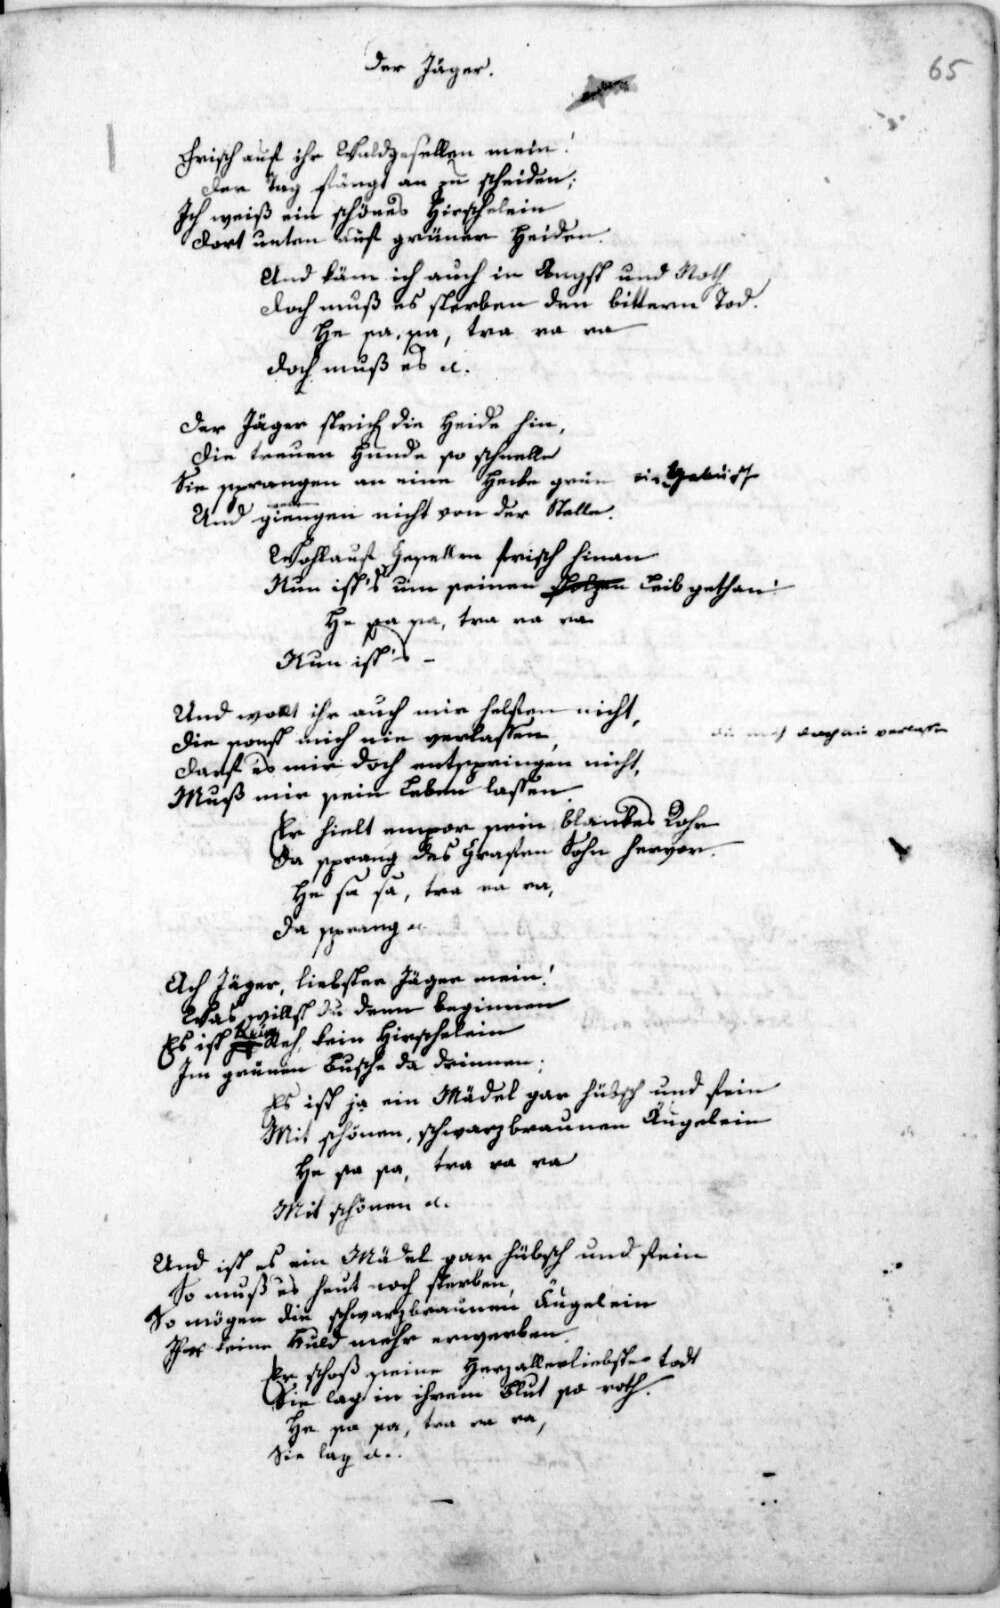 Der Jäger.
65
Frisch auf ihr Waldgesellen mein!
Der Tag fängt an zu scheiden;
Ich weiß ein schönes Hirschelein
Dort unten auf grüner Heiden.
Und käm ich auch in Angst und Noth
Doch muß es sterben den bittern Tod.
He sa, sa, tra ra ra
Doch muß es et.
Der Jäger strich die Heide hin,
Die treuen Hunde so schnelle
Sie sprangen an eine Hecke grün ein Gebüsch
Und giengen nicht von der Stelle.
Wohlauf Gesellen frisch hinan
Nun ist's um seinen stolzen Leib gethan!
He sa sa, tra ra ra
Nun ist's –
Und wollt ihr auch mir helfen nicht,
Die sonst mich nie verlassen,
die mich doch nie verlassen
Darf es mir doch entspringen nicht,
Muß mir sein Leben lassen.
Er hielt empor sein blankes Rohr
Da sprang des Grafen Sohn hervor.
He sa sa, tra ra ra,
Da sprang et.
Ach Jäger, liebster Jäger mein!
Was willst du denn beginnen
Es ist kein Reh, kein Hirschelein
Im grünen Busche da drinnen;
Es ist ja ein Mädel gar hübsch und fein
Mit schönen, schwarzbraunen Äugelein
He sa sa, tra ra ra
Mit schönen et.
Und ist es ein Mädel gar hübsch und fein
So muß es heut noch sterben,
So mögen die schwarzbraunen Äugelein
Ihr keine Huld mehr erwerben.
Er schoß seine Herzallerliebste todt
Sie lag in ihrem Blut so roth.
He sa sa, tra ra ra,
Sie lag et.